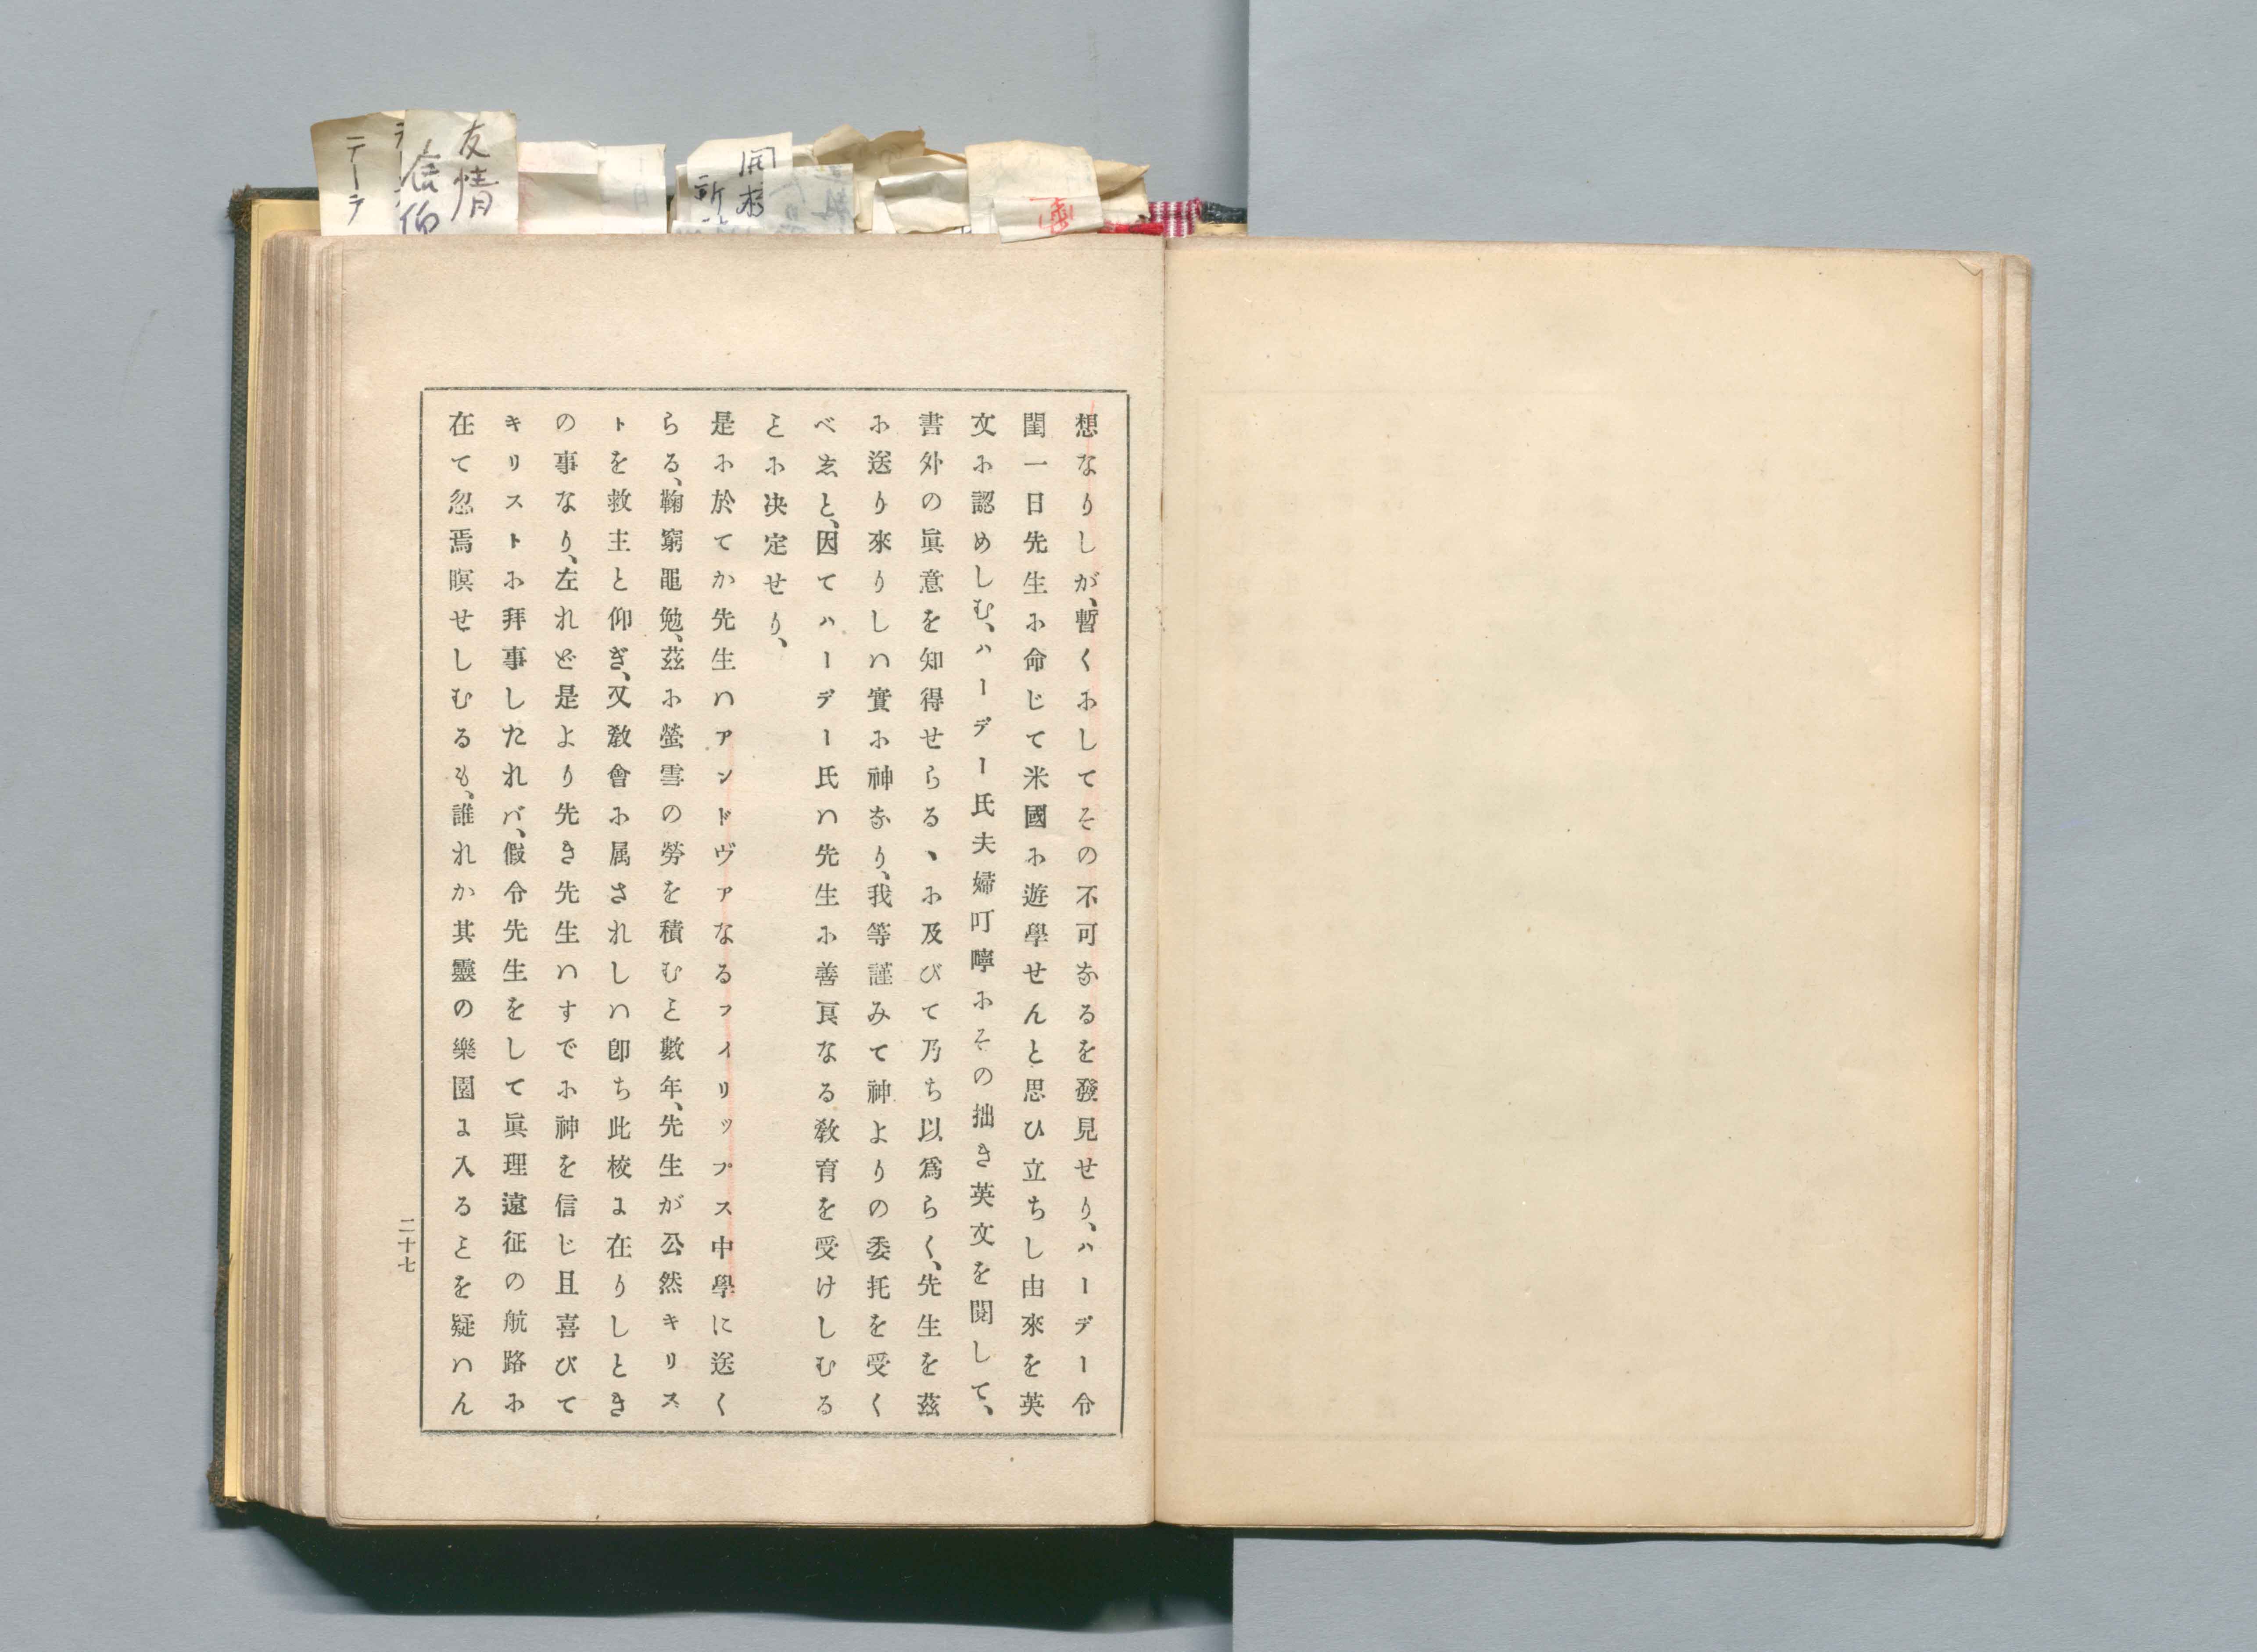 想なりしが、暫くにしてその不可なるを發見せり、ハーデー令
閨一日先生に命じて米國に遊學せんと思ひ立ちし由來を英
文に認めしむ、ハーデー氏夫婦叮嚀にその拙き英文を閲して、
書外の眞意を知得せらるゝに及びて乃ち以爲らく、先生を茲
に送り來りしハ實に神なり、我等謹みて神よりの委托を受く
べゑと、因てハーデー氏ハ先生に善良なる敎育を受けしむる
ことに决定せり、
是に於てか先生ハアンドヴァなるフィリップス中學に送く
らる、鞠窮黽勉、茲に螢雪の勞を積むこと數年、先生が公然キリス
トを救主と仰ぎ、又敎會に属されしハ卽ち此校に在りしとき
の事なり、左れど是より先き先生ハすでに神を信じ且喜びて
キリストに拜事したれバ、假令先生をして眞理遠征の航路に
在て忽焉瞑せしむるも、誰れか其靈の樂園に入ることを疑ハん
二十七
友情
テーラ